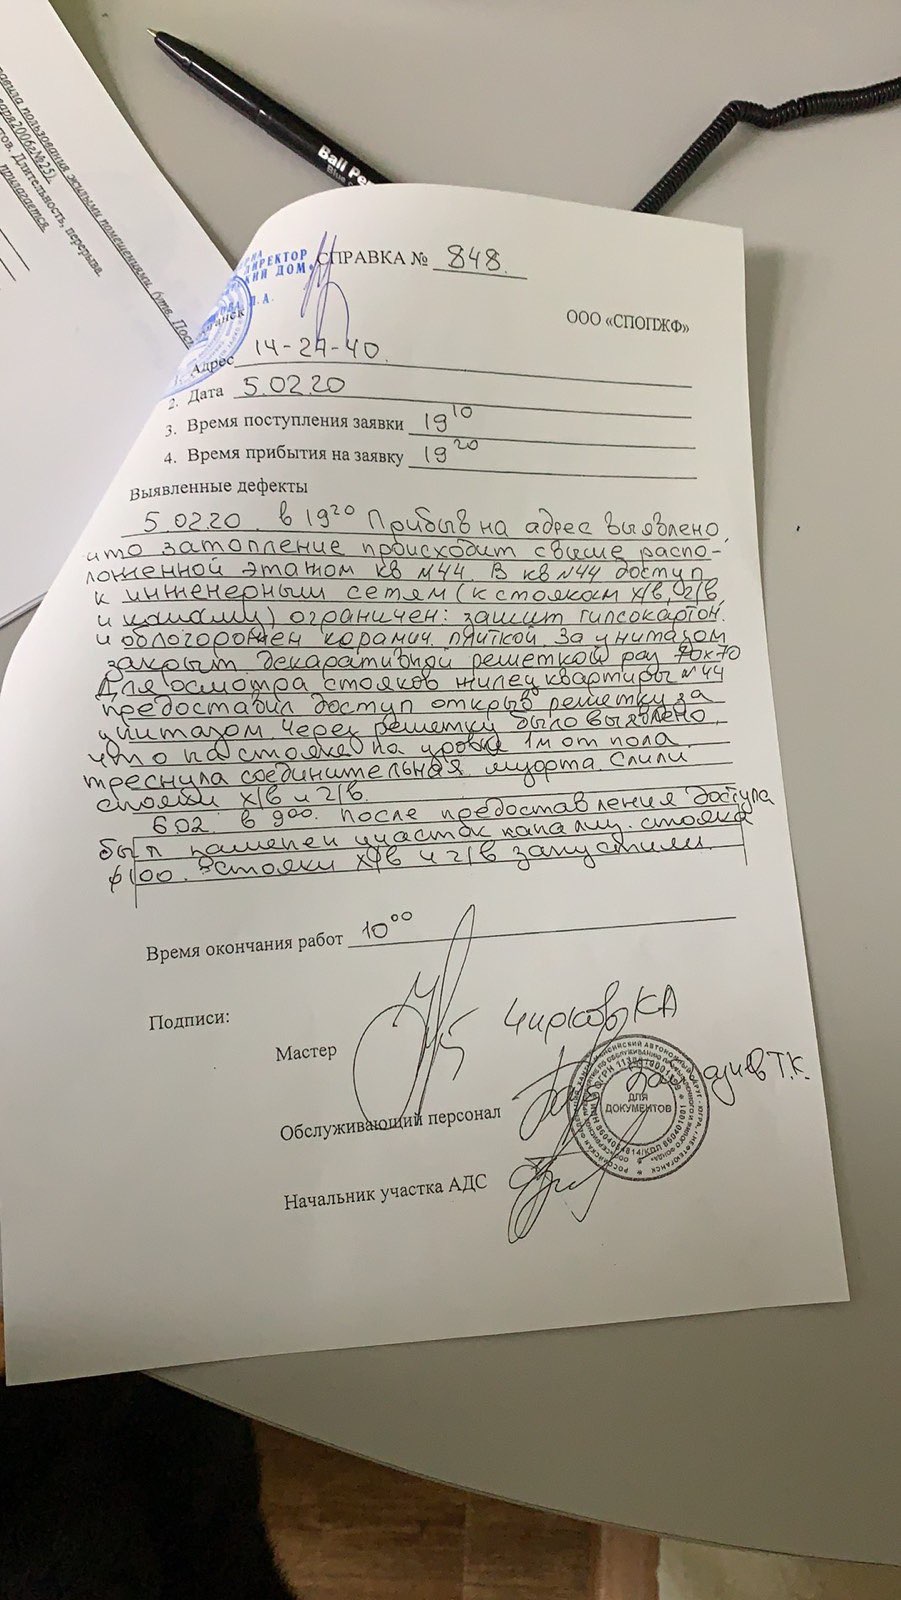 правила пользования жилыми помещениями, (утв. Пос
2006г№25).
Длительность, перерыва.
прилагается.
Ball Pe
Blue
ДИРЕКТОР
КИЙ ДОМ»
СПРАВКА № 848.
ООО «СПОПЖФ»
1. Адрес 14-27-40.
2. Дата 5.02.20
3. Время поступления заявки 19 10
4. Время прибытия на заявку 19 20
Выявленные дефекты
5.02.20 в 19 20 Прибыв на адрес выявлено,
что затопление происходит свыше распо-
ложенной этажом кв N44. В кв N44 доступ
к инженерным сетям (к стоякам х/в, г/в
и канализ) ограничен: зашит гипсокартон.
и облогорожен керамич. плиткой. За унитазом
закрыт декаративной решеткой раз 70х70
Для осмотра стояков жилец квартиры N44
предоставил доступ открыв решетку за
унитазом. Через решетку было выявлено,
что на стояке на уровне 1м от пола
треснула соединительная муфта. Слили
стояки х/в и г/в.
6.02. в 9 00. после предоставления доступа
был поменен участок канализ. стояка
ф100. Стояки х/в и г/в запустили.
Время окончания работ 10 00
Подписи:
Мастер Чирков КА
Обслуживающий персонал Т.К.
ДЛЯ
ДОКУМЕНТОВ
Начальник участка АДС